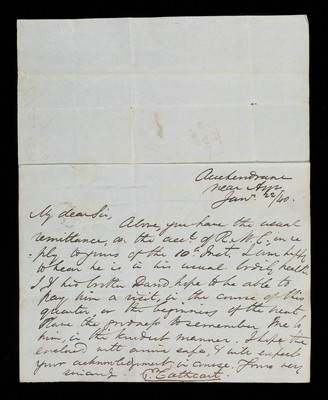 Auchendrane
near Ayr
Jany. 22/40.
My dear Sir,
Above, you have the usual
remittance, on the acct. of R. McC, in re
ply to yours of the 10th Inst. I am happy
to hear he is in his usual bodily health
I, & his brother David, hope to be able to
pay him a visit, in the course of this
quarter, or the beginning of the next.
Have the goodness to remember me to
him, in the kindest manner. I hope the
enclosed will arrive safe, & will expect
your acknowledgment in course. Yours very
sincerely Cathcart.